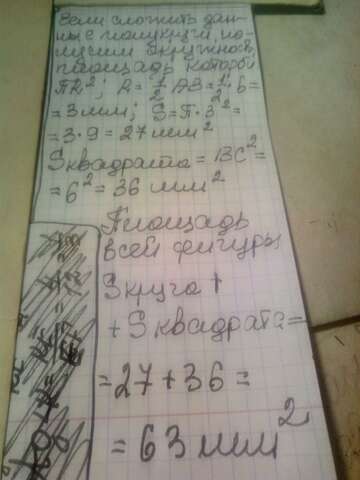 Если сложить дан-
ные полукруги, по-
лучим окружность,
площадь которой
ПR²; R = 1/2 AB = 1/2 · 6 =
= 3 мм; S = П · 3² =
= 3 · 9 = 27 мм²
S квадрата = BC² =
= 6² = 36 мм²
Площадь
всей фигуры
S круга +
+ S квадрата =
= 27 + 36 =
= 63 мм²